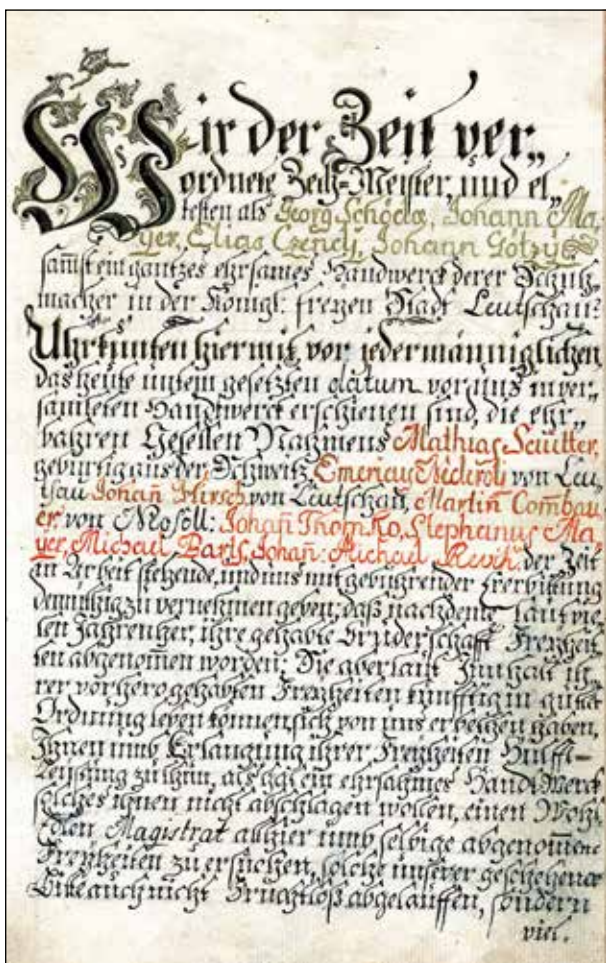 Wir der Zeit ver„
ordnete Zech-Meister, und el„
testen als Georg Schöck, Johann Ma„
yer, Elias Czenclj, Johann Götzy
samt ein gantzes ehrsames Handwerck derer Schuh„
macher in der Königl: freyen Stadt Leutschau:
Uhrkunten hiermit vor jedermänniglichen
das heute untem gesetzten dátum vor uns in ver„
samleten Handtwerck erschienen sind, die ehr„
bahren Gesellen Nahmens Mathias Seutter,
gebürtig aus der Schweitz, Emericus von Leu„
tsau Johañ Hirsch von Leutschau, Martiñ Combau„
er, von Mosoll: Johañ Thomko, Stephanus Ma„
yer, Michael Barts, Johañ: Michael der Zeit
in Arbeit stehende, und uns mit gebührender Ererbittung
demüthig zu vernehmen geben, daß nachdeme laut vie„
len Jahren her, ihre gehabte Bruderschafft Freyhei„
ten abgenom̃en worden: Sie aber laut Innhalt ih„
rer vorhero gehabten Freyheiten künfftig in guter
Ordnung leben können, sich von uns erbethen haben,
Ihnen umb Erlangung ihrer Freyheiten Hülff-
Leistung zu thun, als hat ein ehrsahmes Handt Werck
solches ihnen nicht abschlagen wollen, einen Wohl
Edlen Magistrat alhier umb selbige abgenom̃ene
Freyheiten zu ersuchen, solche unserer geschehener
Bitte auch nicht Fruchtloß abgelauffen, sondern
viel.